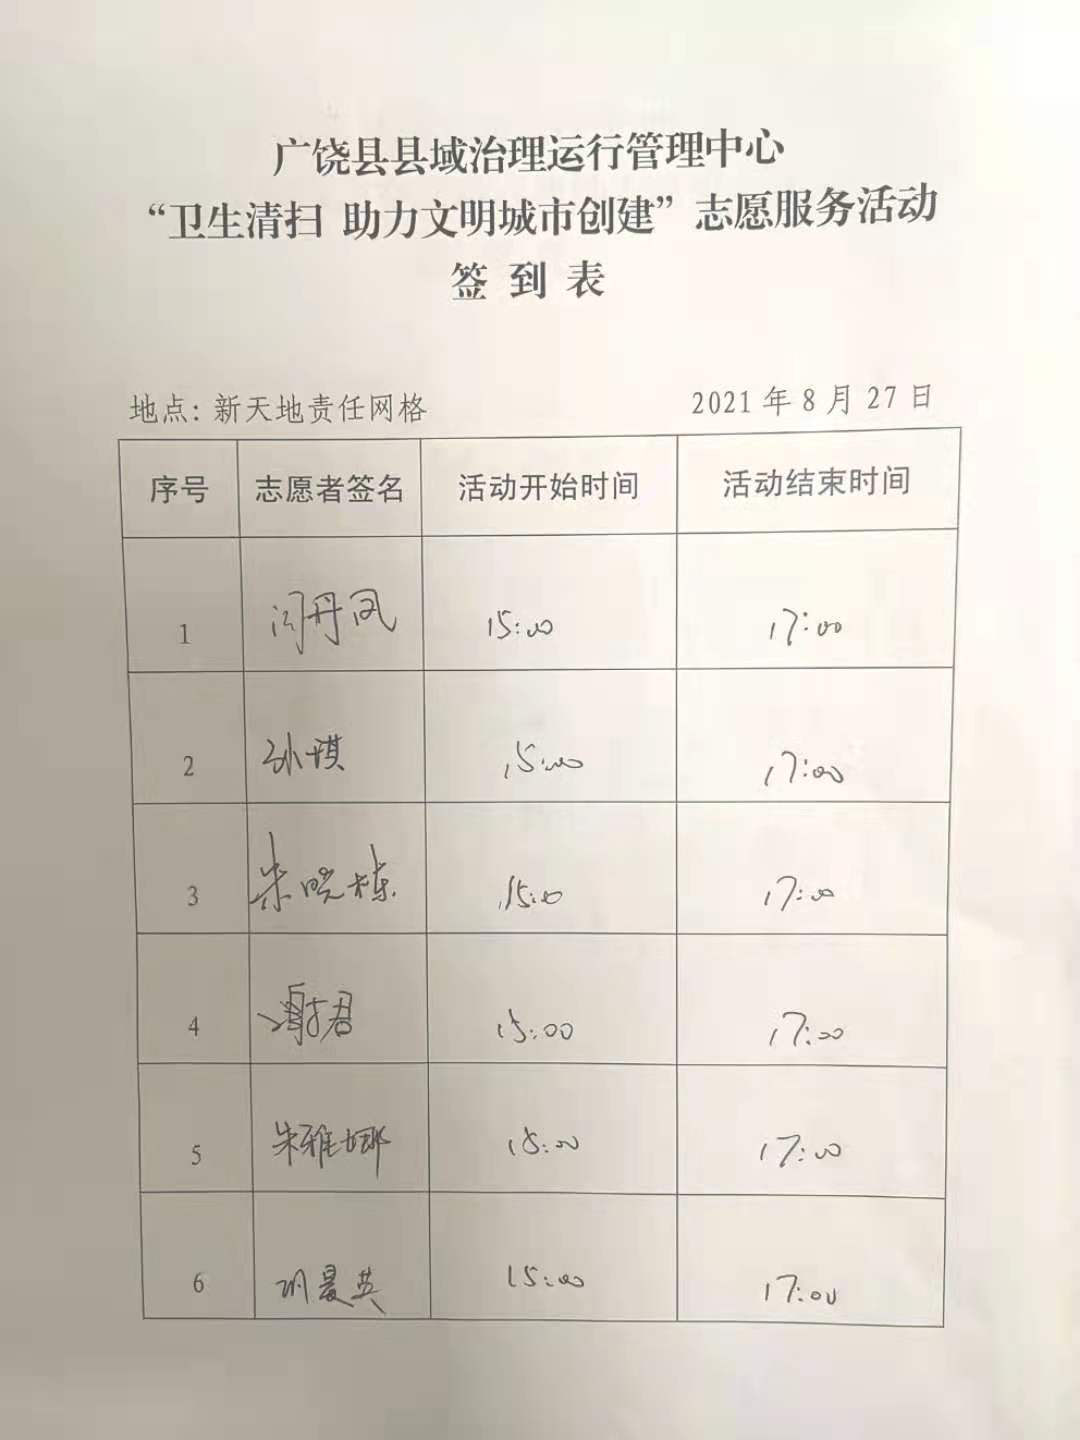 广饶县县域治理运行管理中心
“卫生清扫 助力文明城市创建”志愿服务活动
签 到 表
地点: 新天地责任网格 2021 年 8 月 27 日
序号 志愿者签名 活动开始时间 活动结束时间
1 闫丹凤 15:00 17:00
2 孙琪 15:00 17:00
3 朱晓栋 15:00 17:00
4 谢君 15:00 17:00
5 朱雅娜 15:00 17:00
6 15:00 17:00